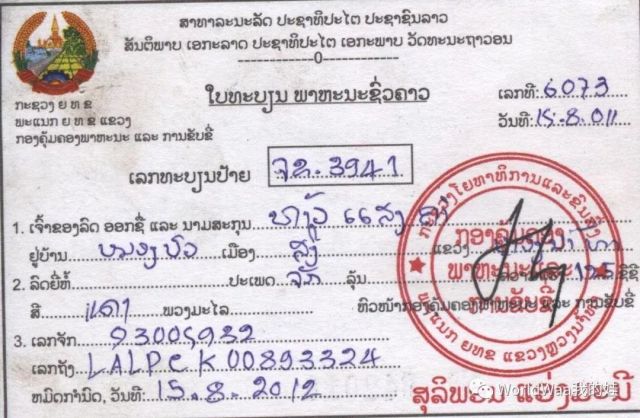 ສາທາລະນະລັດ ປະຊາທິປະໄຕ ປະຊາຊົນລາວ
ສັນຕິພາບ ເອກະລາດ ປະຊາທິປະໄຕ ເອກະພາບ ວັດທະນະຖາວອນ
ກະຊວງ ຍ ທ ຂ
ພະແນກ ຍ ທ ຂ ແຂວງ
ກອງຄຸ້ມຄອງພາຫະນະ ແລະ ການຂັບຂີ່
ໃບທະບຽນ ພາຫະນະຊົ່ວຄາວ
ເລກທີ: 6073
ວັນທີ: 15.8.011
ເລກທະບຽນປ້າຍ 3941
1. ເຈົ້າຂອງລົດ ອອກຊື່ ແລະ ນາມສະກຸນ: ທ້າວ ແສງ
ຢູ່ບ້ານ ເມືອງ ສິງ ແຂວງ
2. ລົດຍີ່ຫໍ້ ປະເພດ ຈັກ ລຸ້ນ 125 ຊີຊີ
ສີ ແດງ ພວງມະໄລ
ຫົວໜ້າກອງຄຸ້ມຄອງພາຫະນະ ແລະ ການຂັບຂີ່
3. ເລກຈັກ 93005932
ເລກຖັງ LALPCK00893324
ໝົດກຳນົດ, ວັນທີ: 15.8.2012
WorldWaa我的娃